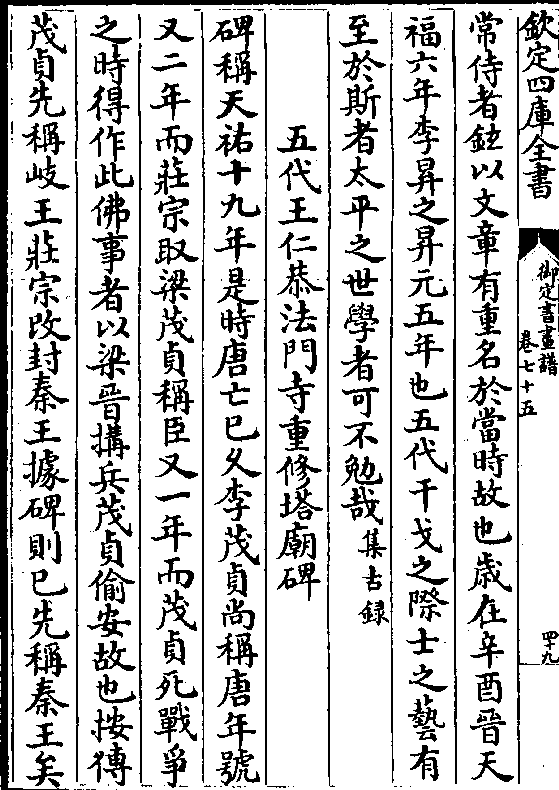 欽定四庫全書
御定書畫譜
卷七十五
四十九
常侍者鉉以文章有重名於當時故也歲在辛酉晉天
福六年李昪之昇元五年也五代干戈之際士之藝有
至於斯者太平之世學者可不勉哉集古録
五代王仁恭法門寺重修塔廟碑
碑稱天祐十九年是時唐亡已久李茂貞尚稱唐年號
又二年而莊宗取梁茂貞稱臣又一年而茂貞死戰爭
之時得作此佛事者以梁晉搆兵茂貞偷安故也按傳
茂貞先稱岐王莊宗改封秦王據碑則已先稱秦王矣